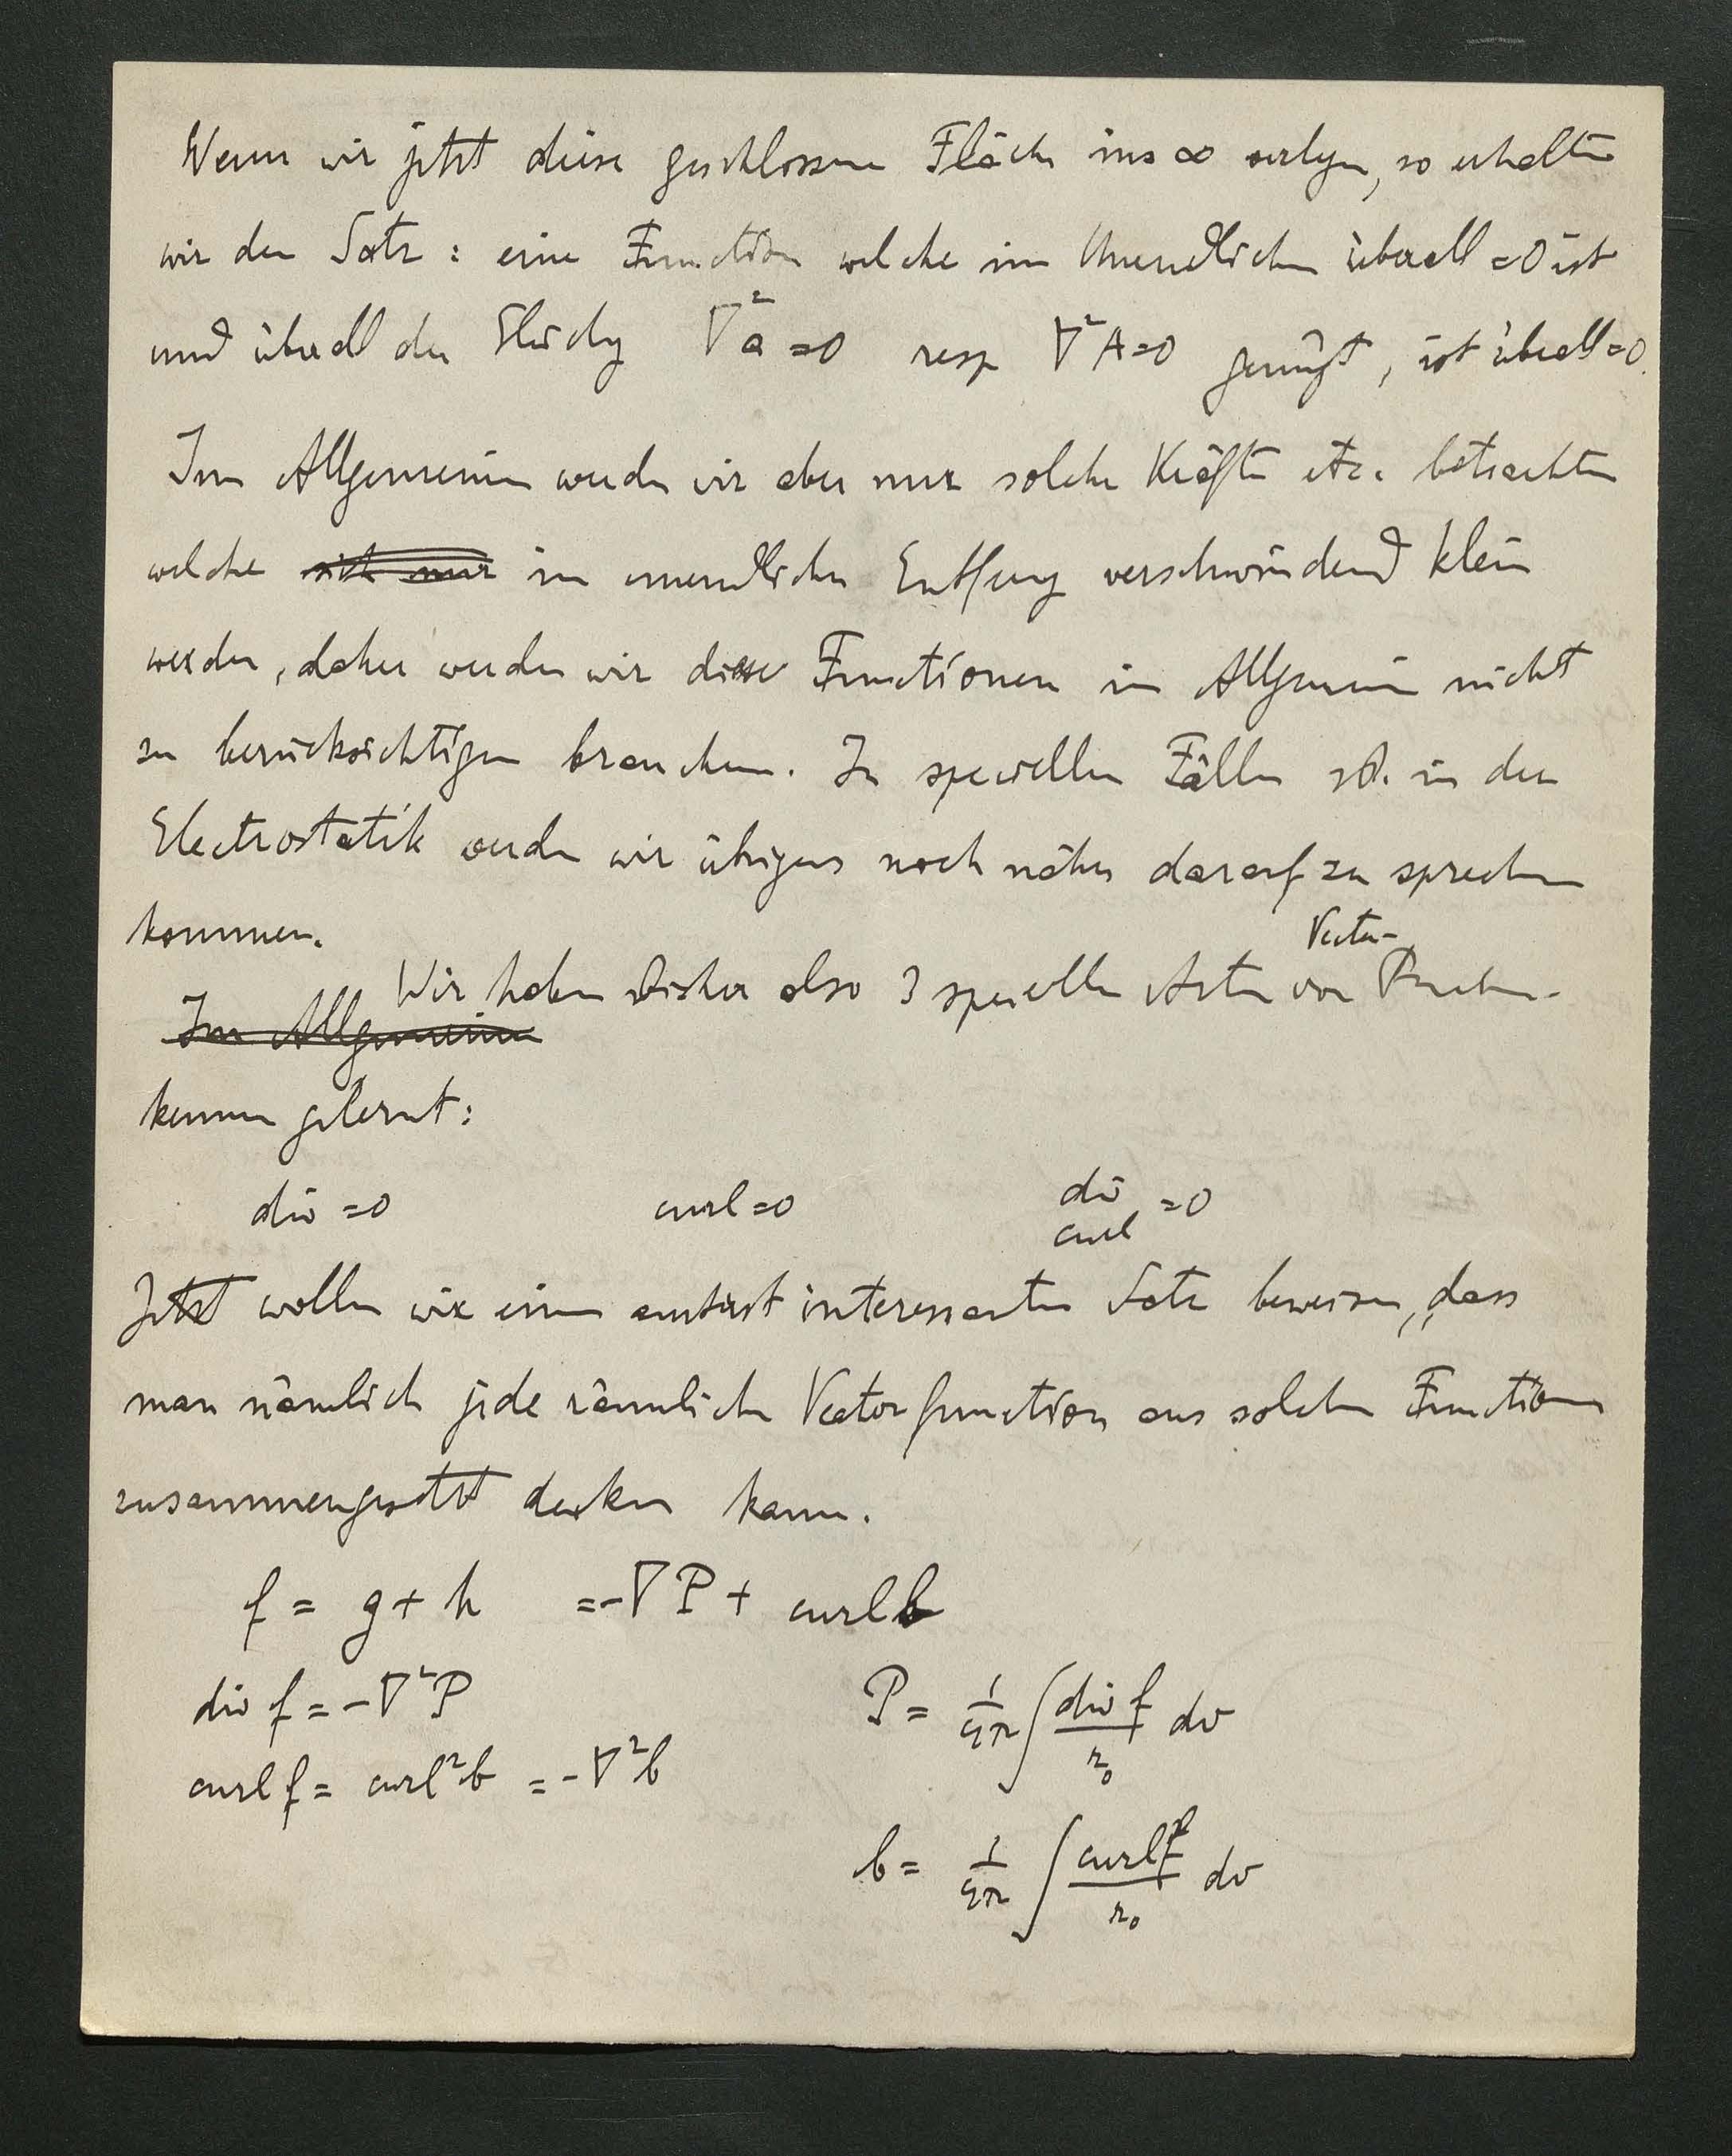 Wenn wir jetzt diese geschlossene Fläche ins ∞ verlegen, so erhalten
wir den Satz: eine Function welche im Unendlichen überall =0 ist
und überall der Gleichg ∇²a=0 resp ∇²A=0 genügt, ist überall=0.
Im Allgemeinen werden wir aber nur solche Kräfte etc. betrachten
welche sich nur in unendlicher Entfung verschwindend klein
werden, daher werden wir diese Functionen im Allgemeinen nicht
zu berücksichtigen brauchen. In speciellen Fällen zB. in der
Electrostatik werden wir übrigens noch näher darauf zu sprechen
kommen.
Vector-
Wir haben bisher also 3 specielle Arten von
Im Allgemeinen
kennen gelernt:
div =0 curl =0 div curl =0
Jetzt wollen wir einen äusserst interessanten Satz beweisen, dass
man nämlich jede räumliche Vectorfunction aus solchen Functionen
zusammengesetzt denken kann.
f = g + h = -∇P + curl b
div f = -∇²P P = 1/4π ∫ div f/r₀ dv
curl f = curl²b = -∇²b
b = 1/4π ∫ curl f/r₀ dv